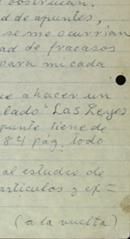 d de apuntes,
se me ocurrian
ad de fracasos
para mi cada
e a hacer un
lado "Las Leyes
punte tiene de
84 pag. todo
al estudio de
articulos y ex=
(a la vuelta)